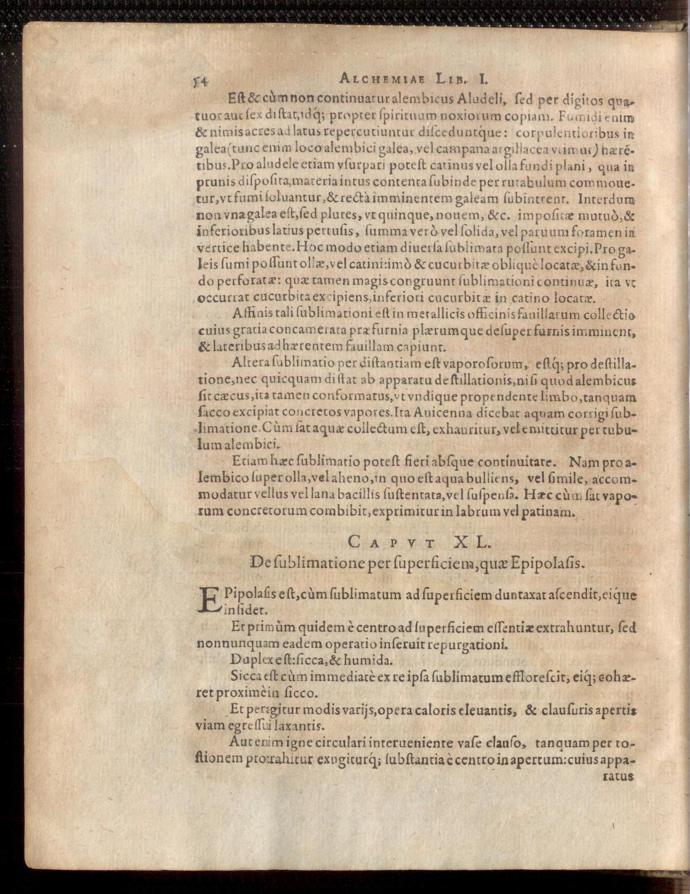 54 ALCHEMIAE LIB. I.
Est & cùm non continuatur alembicus Aludeli, sed per digitos qua-
tuor aut sex distat, idq́; propter spirituum noxiorum copiam. Fumidi enim
& nimis acres ad latus repercutiuntur disceduntque: corpulentioribus in
galea (tunc enim loco alembici galea, vel campana argillacea vtimur) hærē-
tibus. Pro aludele etiam vsurpari potest catinus vel olla fundi plani, qua in
prunis disposita, materia intus contenta subinde per rutabulum commoue-
tur, vt fumi soluantur, & rectà imminentem galeam subintrent. Interdum
non vna galea est, sed plures, vt quinque, nouem, &c. impositæ mutuò, &
inferioribus latius pertusis, summa verò vel solida, vel paruum foramen in
vertice habente. Hoc modo etiam diuersa sublimata possunt excipi. Pro ga-
leis sumi possunt ollæ, vel catini: imò & cucurbitæ obliquè locatæ, & in fun-
do perforatæ: quæ tamen magis congruunt sublimationi continuæ, ita vt
occurrat cucurbita excipiens, inferiori cucurbitæ in catino locatæ.
Affinis tali sublimationi est in metallicis officinis fauillarum collectio
cuius gratia concamerata præfurnia plærumque desuper furnis imminent,
& lateribus adhærentem fauillam capiunt.
Altera sublimatio per distantiam est vaporosorum, estq́; pro destilla-
tione, nec quicquam distat ab apparatu destillationis, nisi quod alembicus
sit cæcus, ita tamen conformatus, vt vndique propendente limbo, tanquam
sacco excipiat concretos vapores. Ita Auicenna dicebat aquam corrigi sub-
limatione. Cùm sat aquæ collectum est, exhauritur, vel emittitur per tubu-
lum alembici.
Etiam hæc sublimatio potest fieri absque continuitate. Nam pro a-
lembico super olla, vel aheno, in quo est aqua bulliens, vel simile, accom-
modatur vellus vel lana bacillis sustentata, vel suspensa. Hæc cùm sat vapo-
rum concretorum combibit, exprimitur in labrum vel patinam.
CAPVT XL.
De sublimatione per superficiem, quæ Epipolasis.
EPipolasis est, cùm sublimatum ad superficiem duntaxat ascendit, eique
insidet.
Et primùm quidem è centro ad superficiem essentiæ extrahuntur, sed
nonnunquam eadem operatio inseruit repurgationi.
Duplex est: sicca, & humida.
Sicca est cùm immediatè ex re ipsa sublimatum efflorescit, eiq́; cohæ-
ret proximè in sicco.
Et peragitur modis varijs, opera caloris eleuantis, & clausuris apertis
viam egressui laxantis.
Aut enim igne circulari interueniente vase clauso, tanquam per to-
stionem protrahitur exugiturq́; substantia è centro in apertum: cuius appa-
ratus